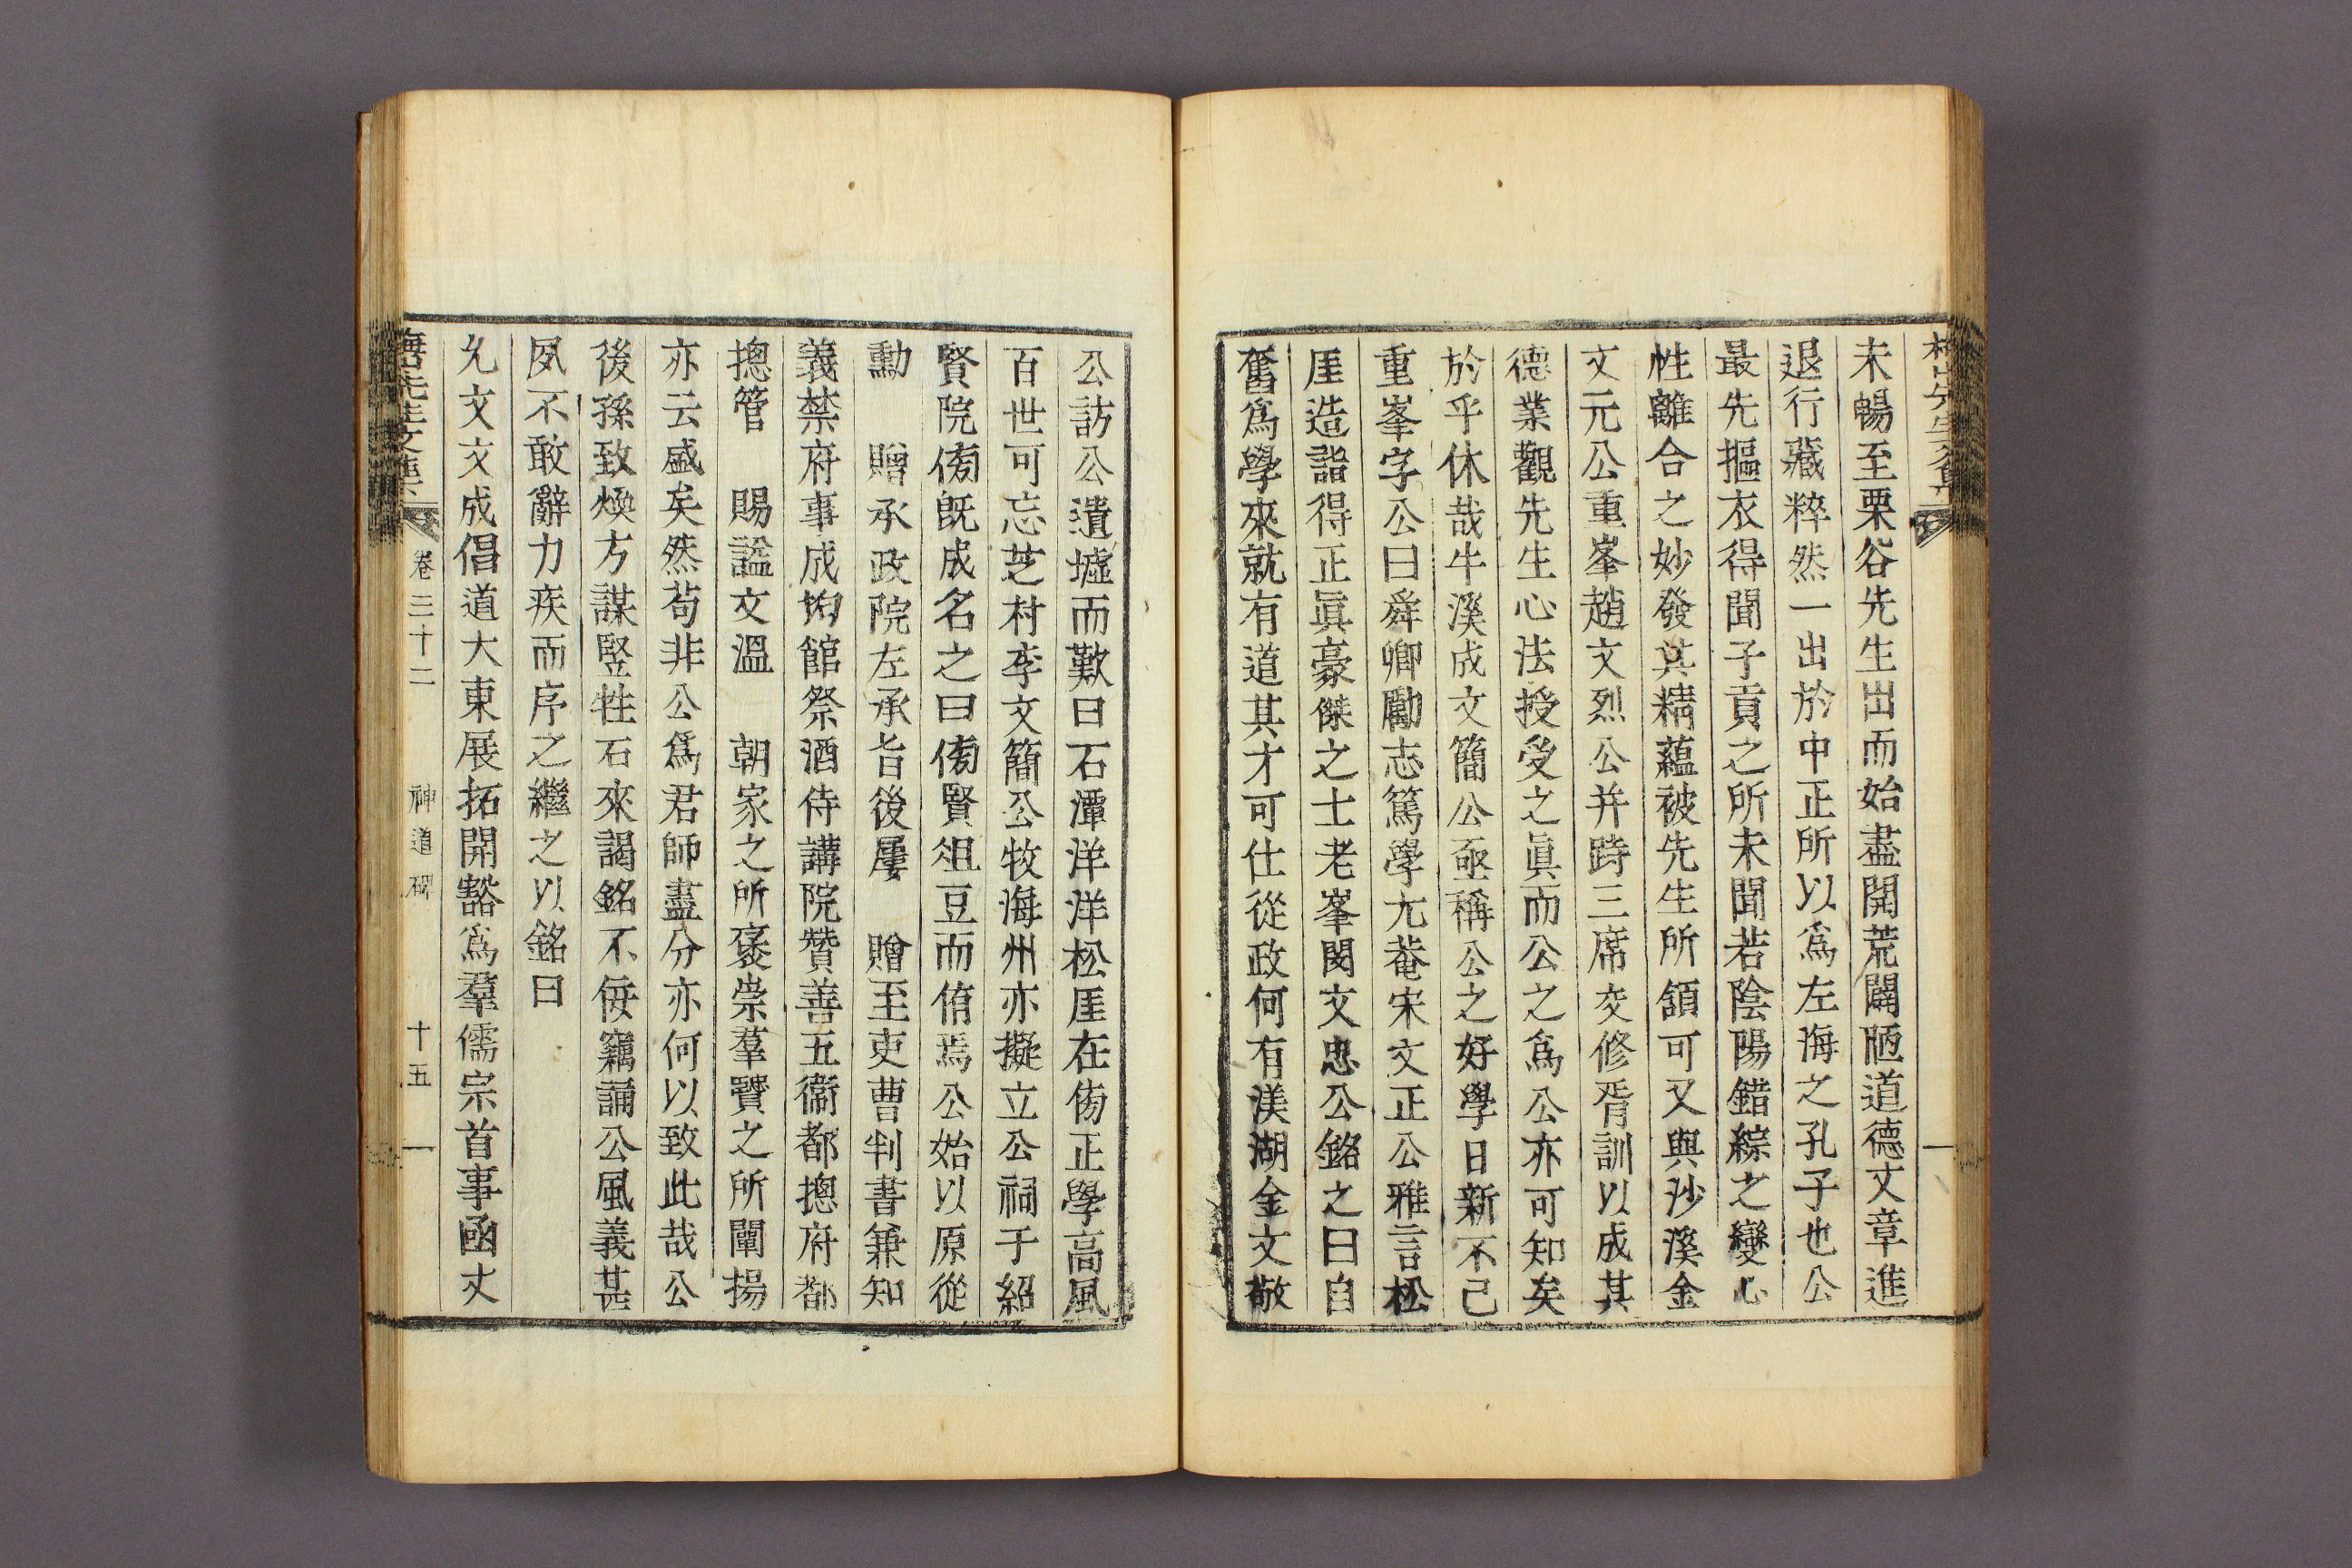 未暢至栗谷先生出而始盡開荒闢陋道德文章進
退行藏粹然一出於中正所以爲左海之孔子也公
最先摳衣得聞子貢之所未聞若陰陽錯綜之變心
性離合之妙發其精蘊被先生所頷可又與沙溪金
文元公重峯趙文烈公并時三席交修胥訓以成其
德業觀先生心法授受之眞而公之爲公亦可知矣
於乎休哉牛溪成文簡公亟稱公之好學日新不已
重峯字公曰舜卿勵志篤學尤菴宋文正公雅言松
厓造詣得正眞豪傑之士老峯閔文忠公銘之曰自
奮爲學來就有道其才可仕從政何有渼湖金文敬
公訪公遺墟而歎曰石潭洋洋松厓在傍正學高風
百世可忘芝村李文簡公牧海州亦擬立公祠于紹
賢院傍旣成名之曰傍賢俎豆而侑焉公始以原從
勳 贈承政院左承旨後屢 贈至吏曹判書兼知
義禁府事成均館祭酒侍講院贊善五衛都摠府都
摠管 賜諡文溫 朝家之所褒崇羣賢之所闡揚
亦云盛矣然苟非公爲君師盡分亦何以致此哉公
後孫致煥方謀竪牲石來謁銘不佞竊誦公風義甚
夙不敢辭力疾而序之繼之以銘曰
允文文成倡道大東展拓開豁爲羣儒宗首事函丈
梅山先生文集 卷三十二 神道碑 十五